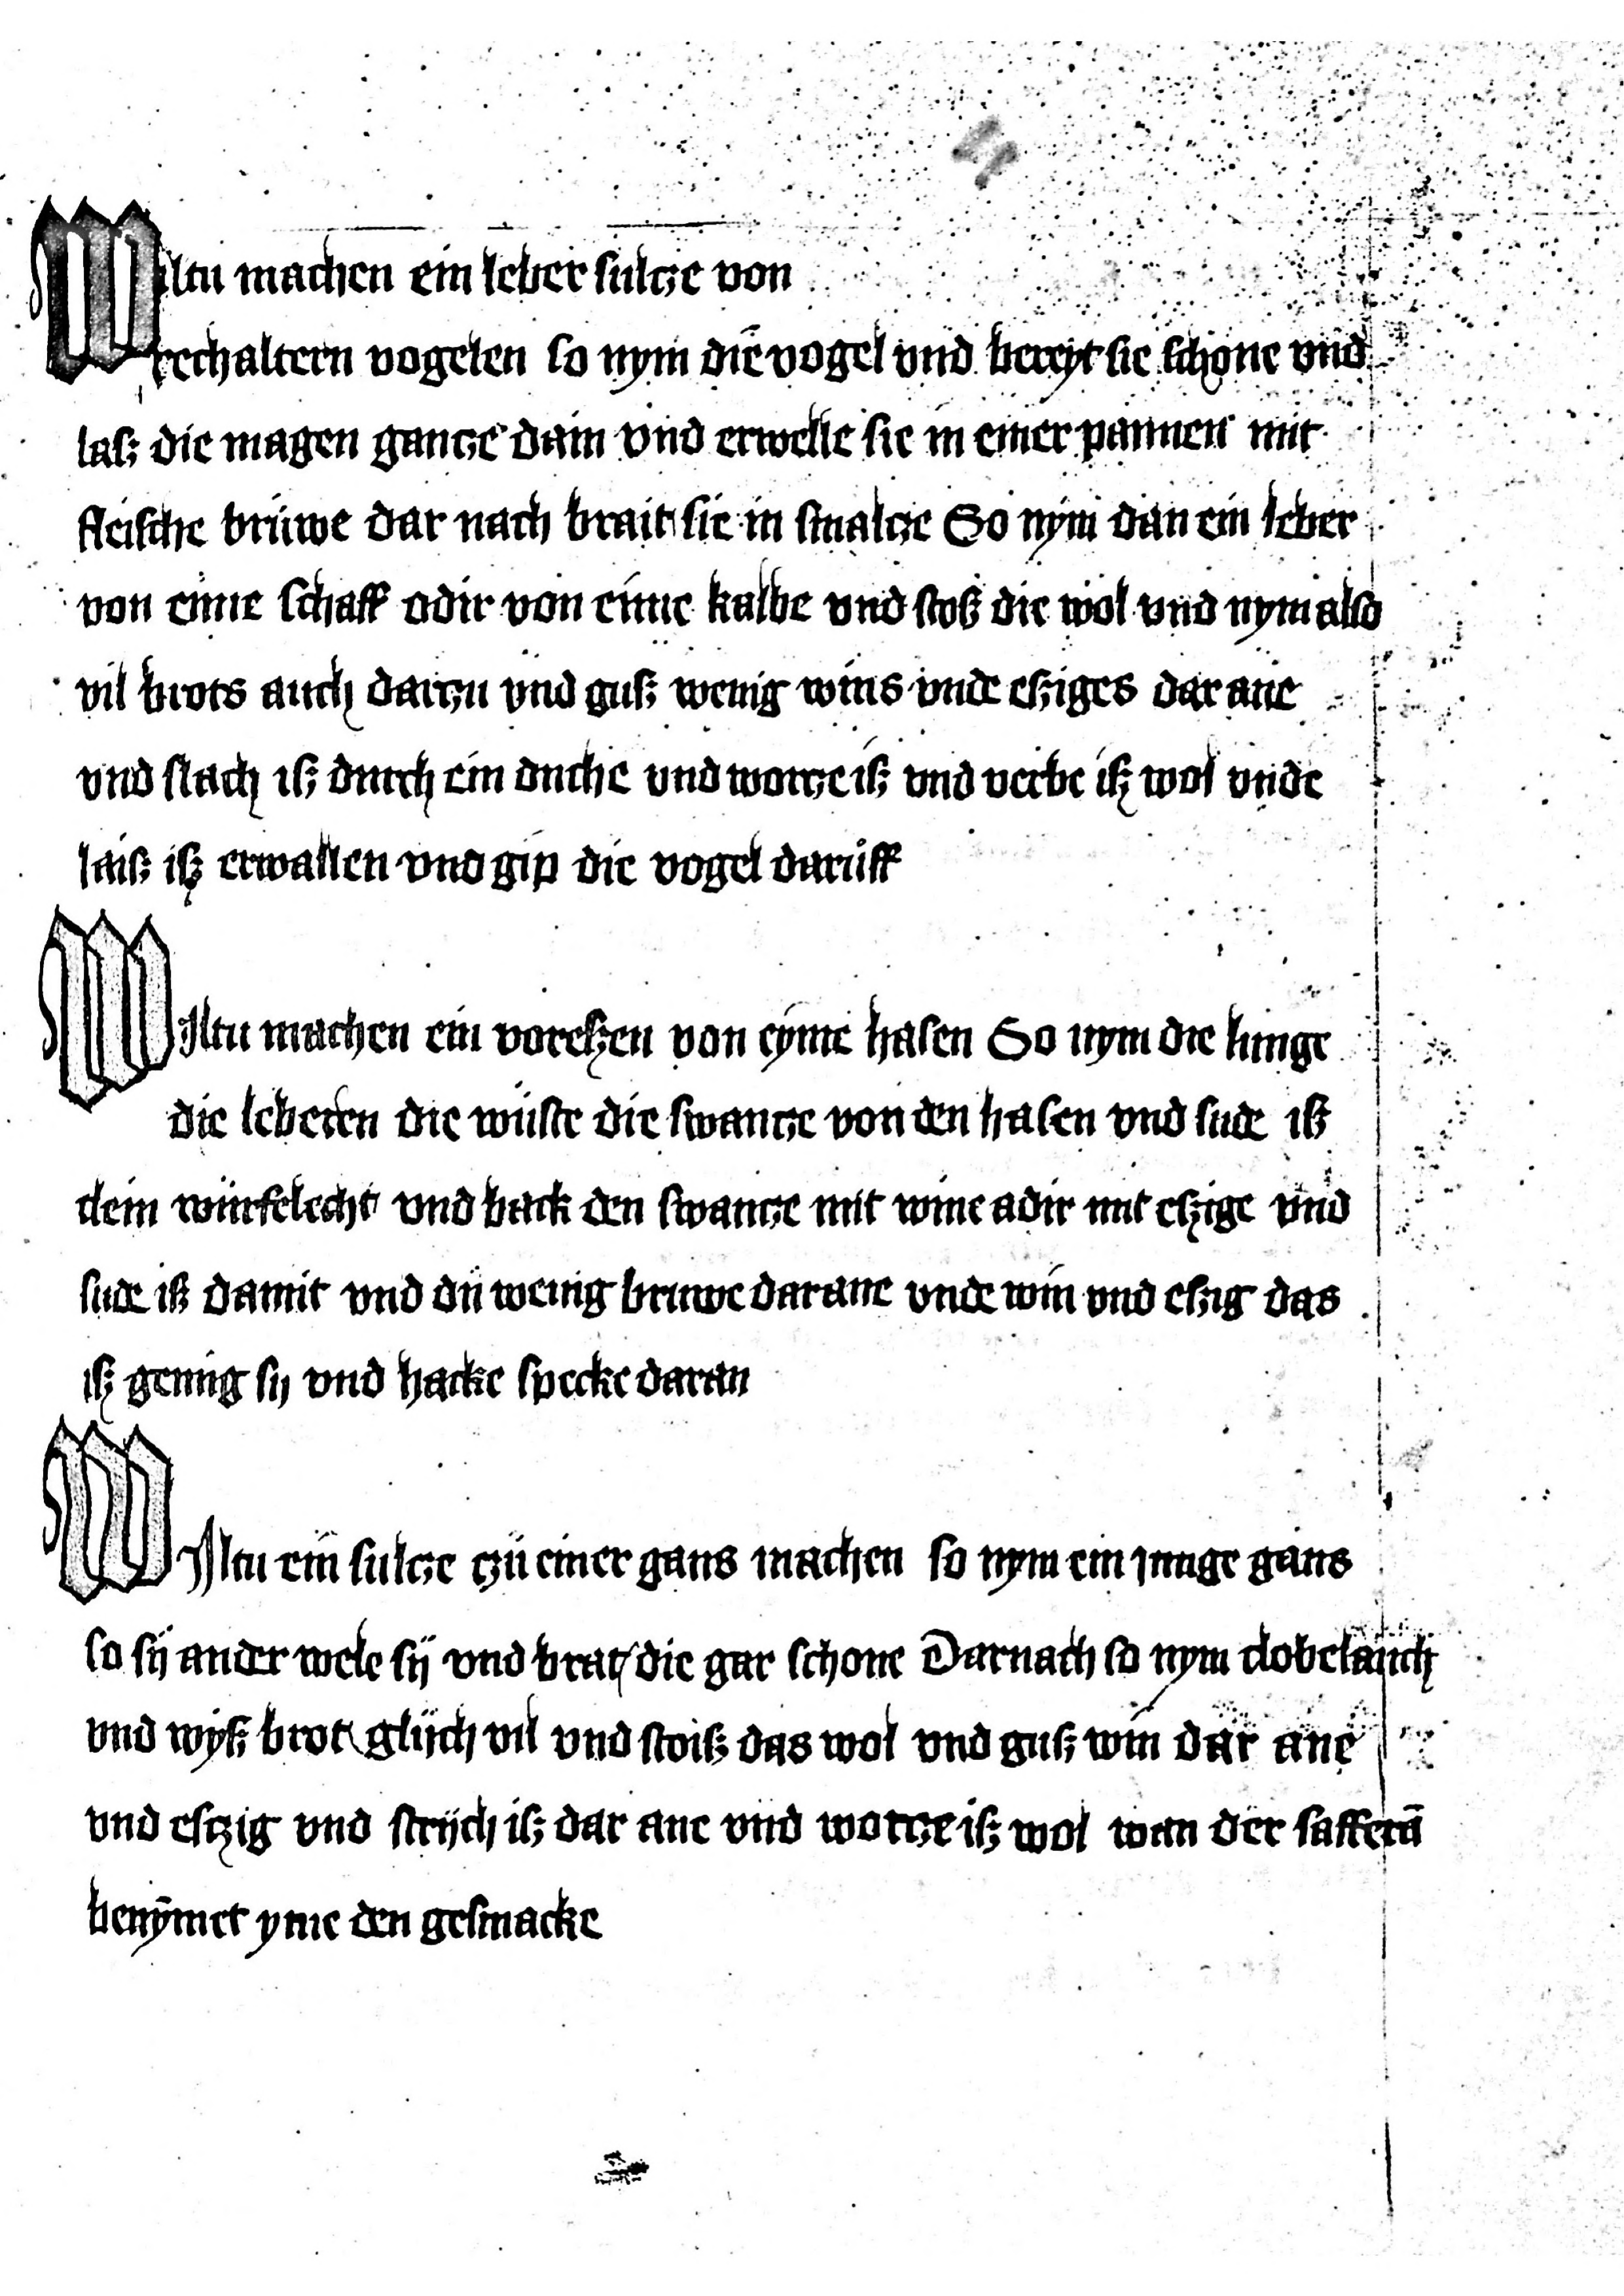 Wiltu machen ein leber sultze von
rechaltern vogelen so nym die vogel vnd bereyt sie schone vnd
lasz die magen gantze dain vnd erwelle sie in einer pannen mit
fleische brüwe dar nach brait sie in smaltze So nym dan ein leber
von eime schaff odir von eime kalbe vnd stosz die wol vnd nym also
vil brots auch dartzu vnd gusz wenig wins vnde esziges dar ane
vnd slach isz durch ein duche vnd wortze isz vnd verbe isz wol vnde
laisz isz erwallen vnd gip die vogel darüff
Wiltu machen ein voreszen von eyme hasen So nym die lunge
die leberen die wüste die swantze von den hasen vnd sude isz
clein würfelecht vnd hack den swantze mit wine adir mit eszige vnd
sude isz damit vnd dü wenig bruwe darane vnde win vnd eszig das
isz genüg sij vnd hacke specke daran
Wiltu ein sultze tzü einer gans machen so nym ein junge gans
so sij ander wele sij vnd brat die gar schone Darnach so nym clobelauch
vnd wysz brot glijch vil vnd stoisz das wol vnd gusz win dar ane
vnd esszig vnd strijch isz dar ane vnd wortze isz wol wan der safferā
benȳmet yme den gesmacke